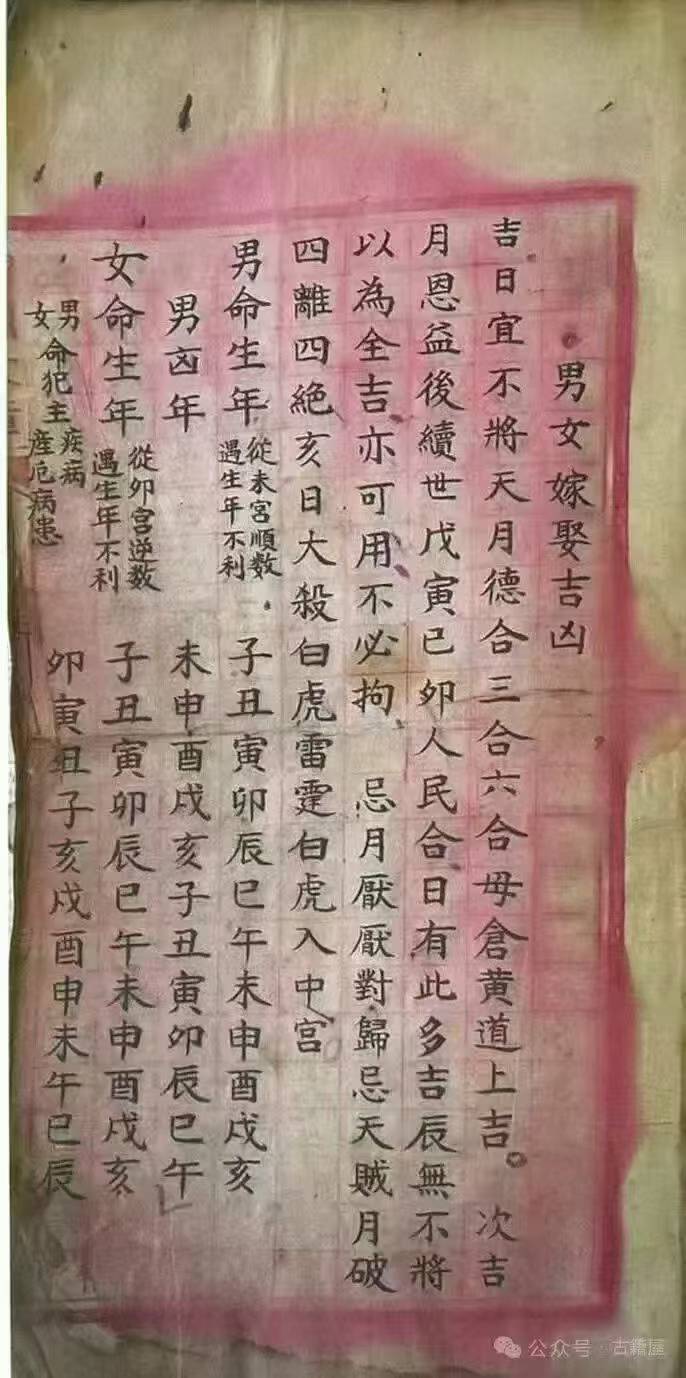 男女嫁娶吉凶
吉日宜不將天月德合三合六合母倉黄道上吉。 次吉
月恩益後續世戊寅已卯人民合日有此多吉辰無不將
以為全吉亦可用不必拘 忌月厭厭對歸忌天賊月破
四離四絶亥日大殺白虎雷霆白虎入中宮
男命生年 從未宮順數 遇生年不利 子丑寅卯辰巳午未申酉戌亥
男凶年 未申酉戌亥子丑寅卯辰巳午
女命生年 從卯宮逆数 遇生年不利 子丑寅卯辰巳午未申酉戌亥
男女命犯主疾病產厄病患 卯寅丑子亥戌酉申未午巳辰
公众号·古籍屋